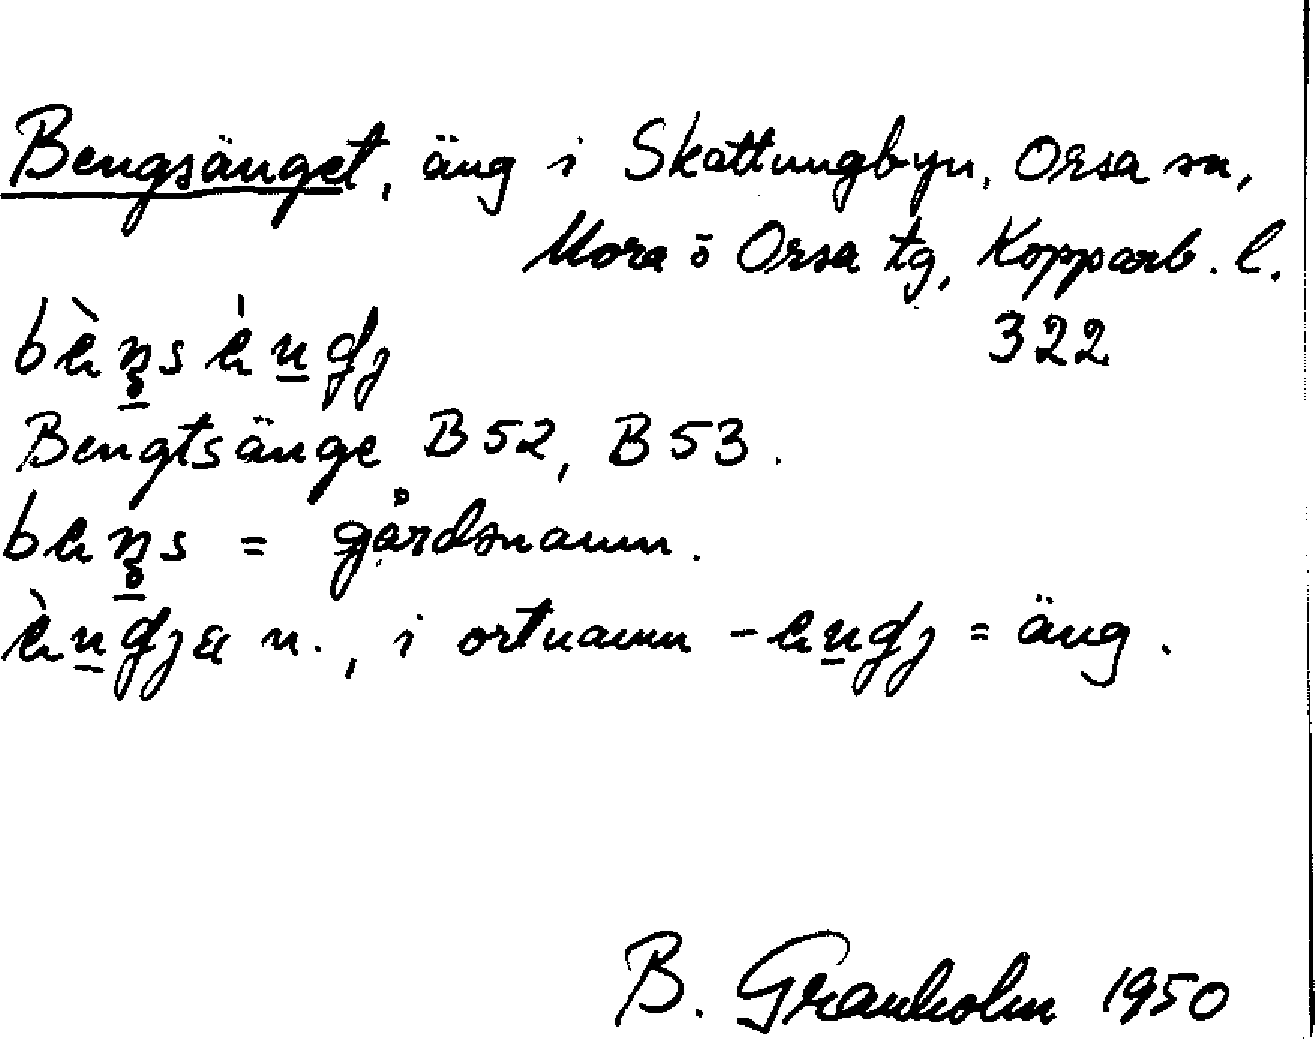 Bengsänget, äng i Skattungbyn, Orsa sn,
Mora ö Orsa tg, Kopparb. l.
322
Bengtsänge B52, B53.
= gårdsnamn.
n., i ortnamn = äng.
B. Granholm 1950